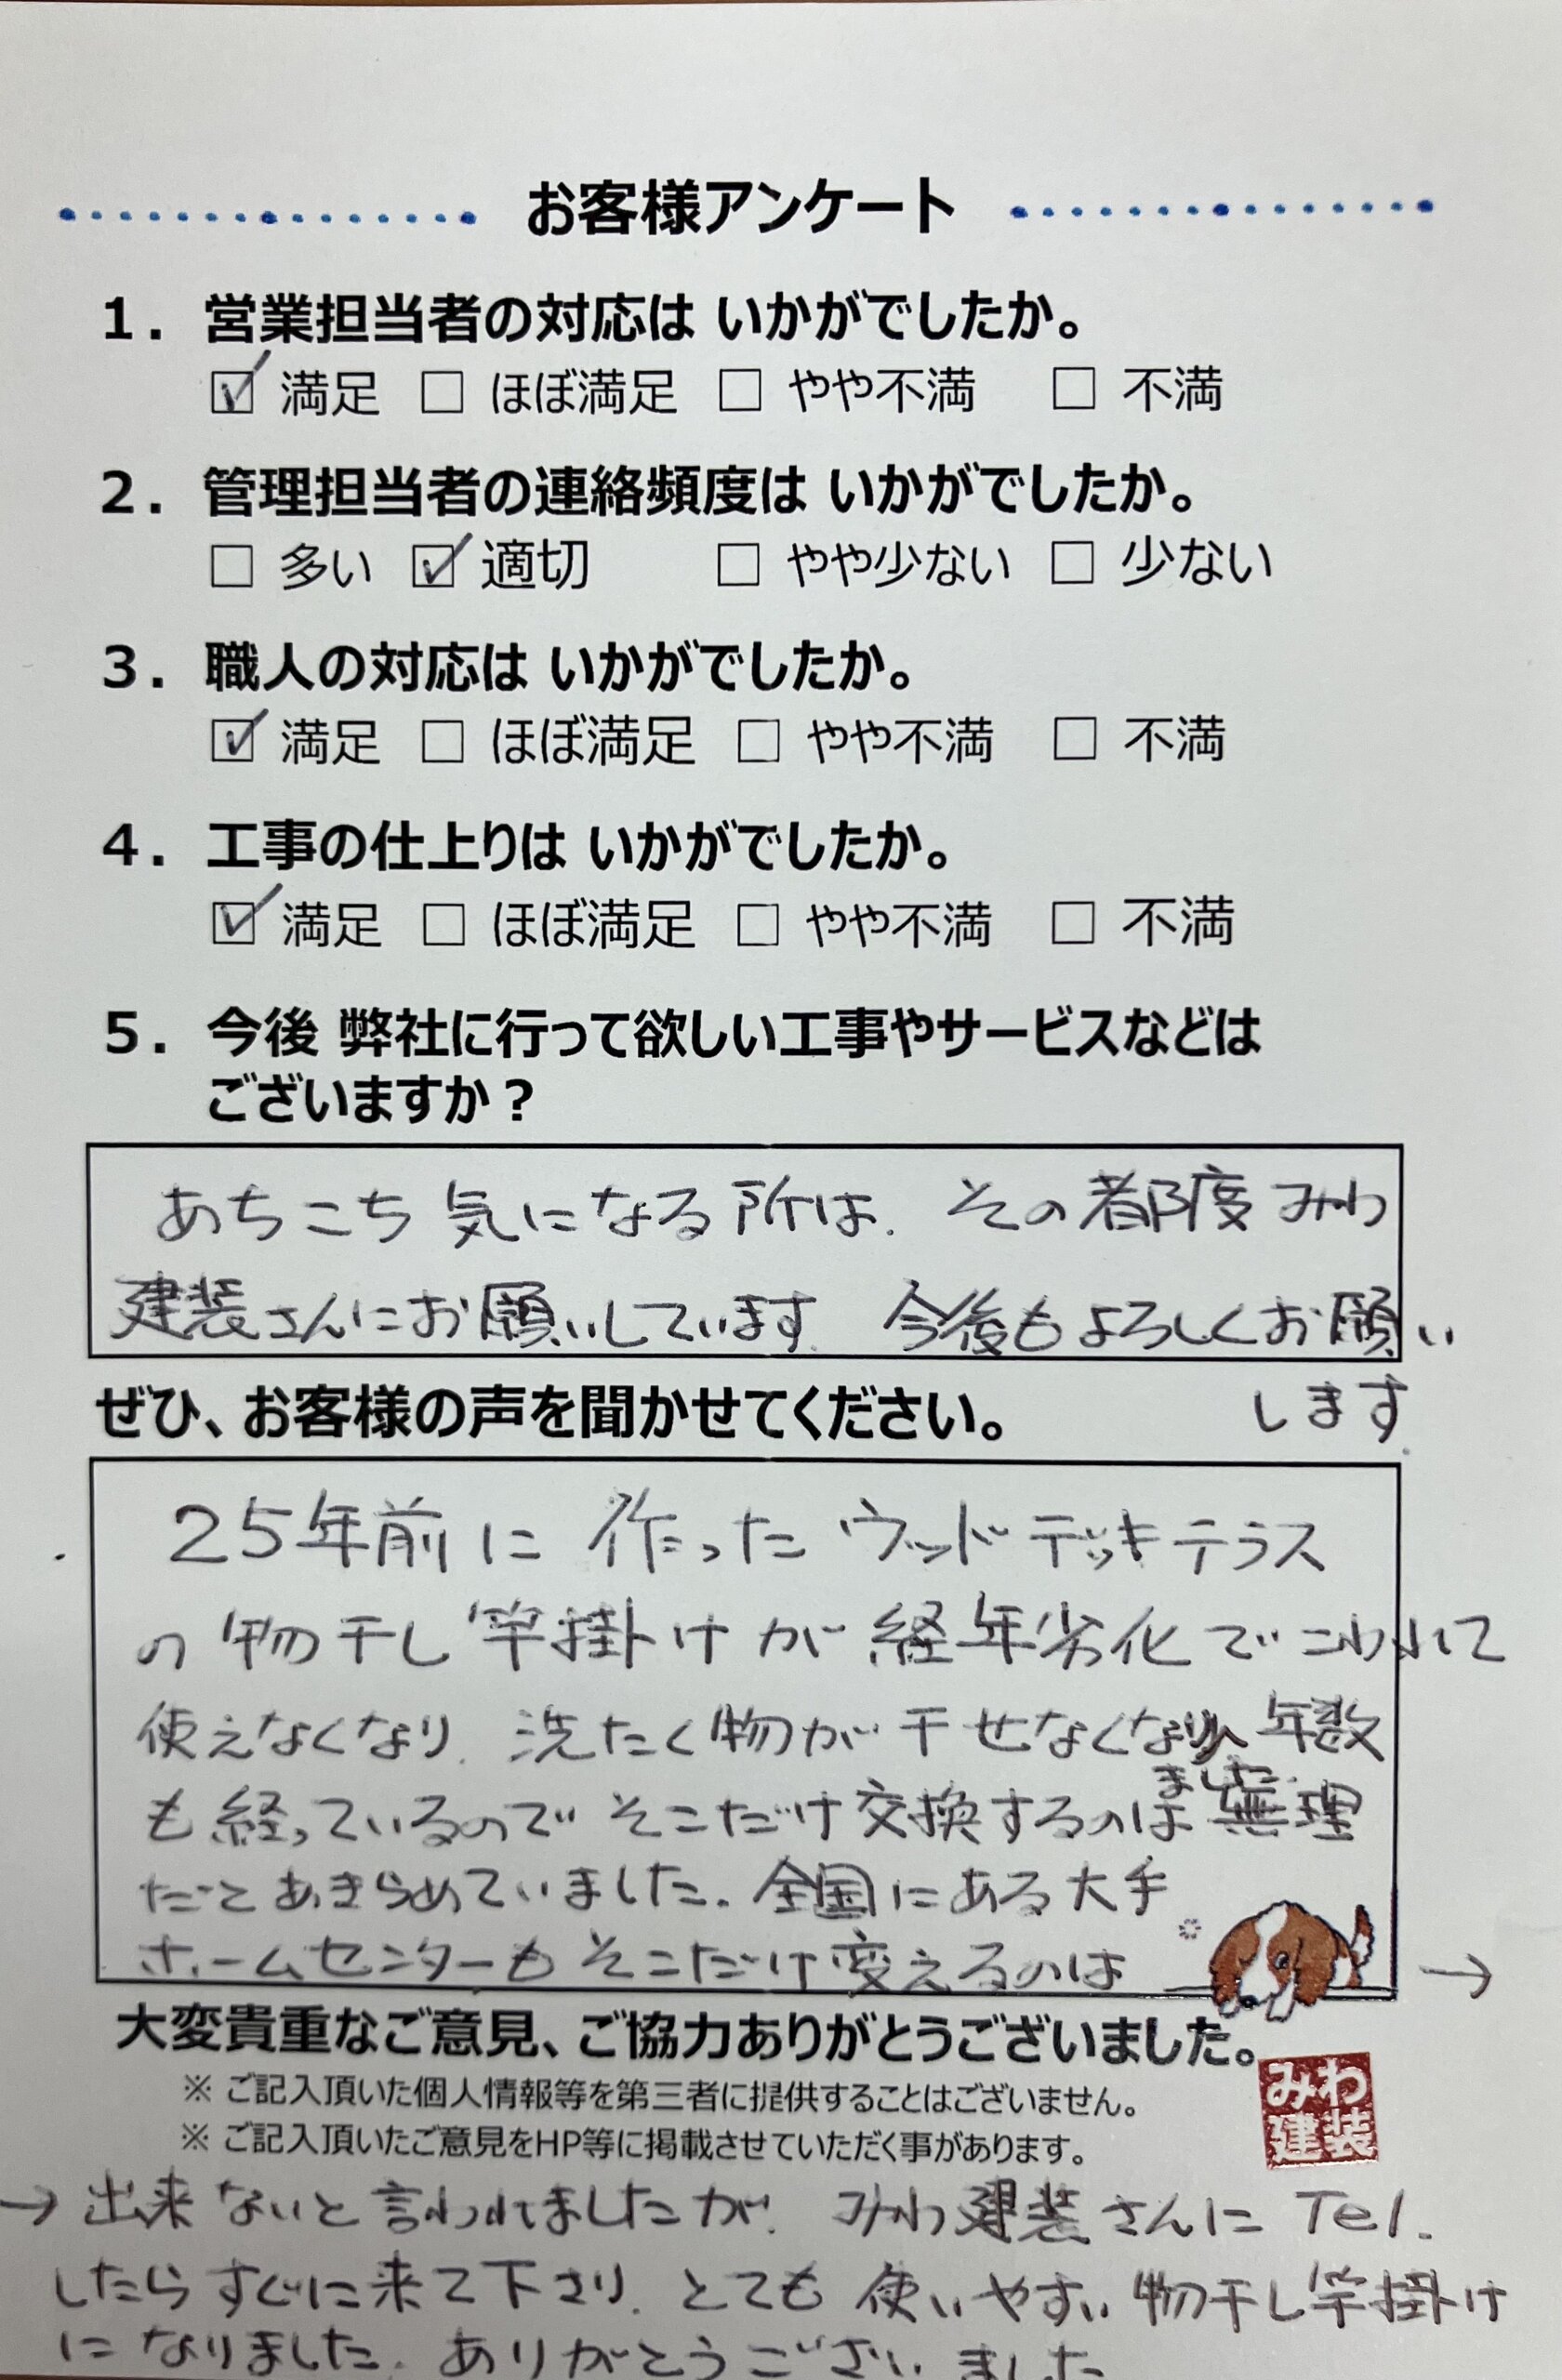 お客様アンケート
1. 営業担当者の対応は いかがでしたか。
☑ 満足 □ ほぼ満足 □ やや不満 □ 不満
2. 管理担当者の連絡頻度は いかがでしたか。
□ 多い ☑ 適切 □ やや少ない □ 少ない
3. 職人の対応は いかがでしたか。
☑ 満足 □ ほぼ満足 □ やや不満 □ 不満
4. 工事の仕上りは いかがでしたか。
☑ 満足 □ ほぼ満足 □ やや不満 □ 不満
5. 今後 弊社に行って欲しい工事やサービスなどは
ございますか？
あちこち気になる所は、その都度みわ
建装さんにお願いしています。今後もよろしくお願い
します。
ぜひ、お客様の声を聞かせてください。
25年前に作ったウッドデッキテラス
の物干し竿掛けが経年劣化でこわれて
使えなくなり、洗たく物が干せなくなり 年数
ました。
も経っているのでそこだけ交換するのは無理
だとあきらめていました。全国にある大手
ホームセンターもそこだけ変えるのは →
大変貴重なご意見、ご協力ありがとうございました。
※ ご記入頂いた個人情報等を第三者に提供することはございません。
※ ご記入頂いたご意見をHP等に掲載させていただく事があります。
みわ
建装
→ 出来ないと言われましたが、みわ建装さんに Tel.
したらすぐに来て下さり、とても使いやすい物干し竿掛け
になりました。ありがとうございました